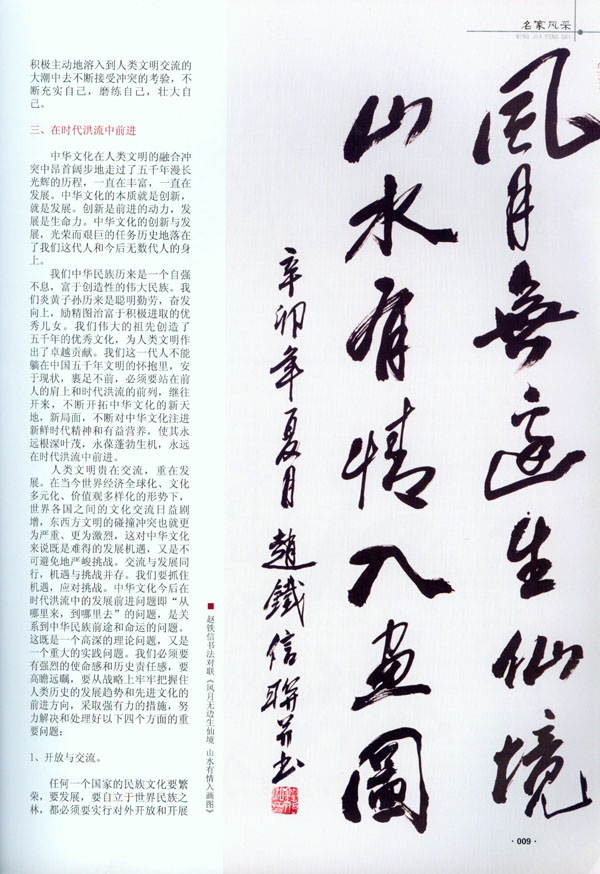 名家风采
MING JIA FENG CAI
积极主动地溶入到人类文明交流的
大潮中去不断接受冲突的考验，不
断充实自己，磨练自己，壮大自
己。
三、在时代洪流中前进
中华文化在人类文明的融合冲
突中昂首阔步地走过了五千年漫长
光辉的历程，一直在丰富，一直在
发展。中华文化的本质就是创新，
就是发展。创新是前进的动力，发
展是生命力。中华文化的创新与发
展，光荣而艰巨的任务历史地落在
了我们这代人和今后无数代人的身
上。
我们中华民族历来是一个自强
不息，富于创造性的伟大民族。我
们炎黄子孙历来是聪明勤劳，奋发
向上，励精图治富于积极进取的优
秀儿女。我们伟大的祖先创造了
五千年的优秀文化，为人类文明作
出了卓越贡献。我们这一代人不能
躺在中国五千年文明的怀抱里，安
于现状，裹足不前，必须要站在前
人的肩上和时代洪流的前列，继往
开来，不断开拓中华文化的新天
地，新局面，不断对中华文化注进
新鲜时代精神和有益营养，使其永
远根深叶茂，永葆蓬勃生机，永远
在时代洪流中前进。
人类文明贵在交流，重在发
展。在当今世界经济全球化、文化
多元化、价值观多样化的形势下，
世界各国之间的文化交流日益剧
增，东西方文明的碰撞冲突也就更
为严重、更为激烈，这对中华文化
来说既是难得的发展机遇，又是不
可避免地严峻挑战。交流与发展同
行，机遇与挑战并存。我们要抓住
机遇，应对挑战。中华文化今后在
时代洪流中的发展前进问题即“从
哪里来，到哪里去”的问题，是关
系到中华民族前途和命运的问题。
这既是一个高深的理论问题，又是
一个重大的实践问题。我们必须要
有强烈的使命感和历史责任感，要
高瞻远瞩，要从战略上牢牢把握住
人类历史的发展趋势和先进文化的
前进方向，采取强有力的措施，努
力解决和处理好以下四个方面的重
要问题：
1、开放与交流。
任何一个国家的民族文化要繁
荣，要发展，要自立于世界民族之
林，都必须要实行对外开放和开展
赵铁信书法对联《风月无边生仙境 山水有情入画图》
風月無邊生仙境
山水有情入画圖
辛卯年夏月趙鐵信聯并书
·009·